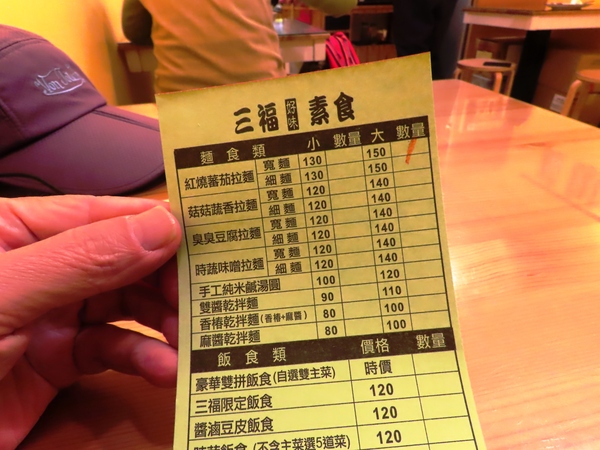 Von Dutch
三福 好味 素食
麵食類 小 數量 大 數量
紅燒蕃茄拉麵 寬麵 130 150
細麵 130 150
菇菇蔬香拉麵 寬麵 120 140
細麵 120 140
臭臭豆腐拉麵 寬麵 120 140
細麵 120 140
時蔬味噌拉麵 寬麵 120 140
細麵 120 140
手工純米鹹湯圓 100 120
雙醬乾拌麵 90 110
香椿乾拌麵(香椿+麻醬) 80 100
麻醬乾拌麵 80 100
飯食類 價格 數量
豪華雙拼飯食(自選雙主菜) 時價
三福限定飯食 120
醬滷豆皮飯食 120
時蔬飯食 (不含主菜選5道菜) 120